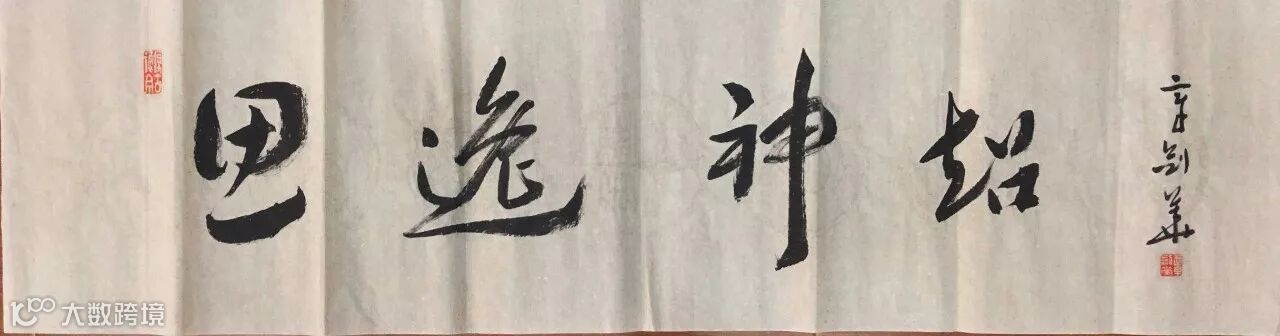 思逸神超
章剑華
大数跨境